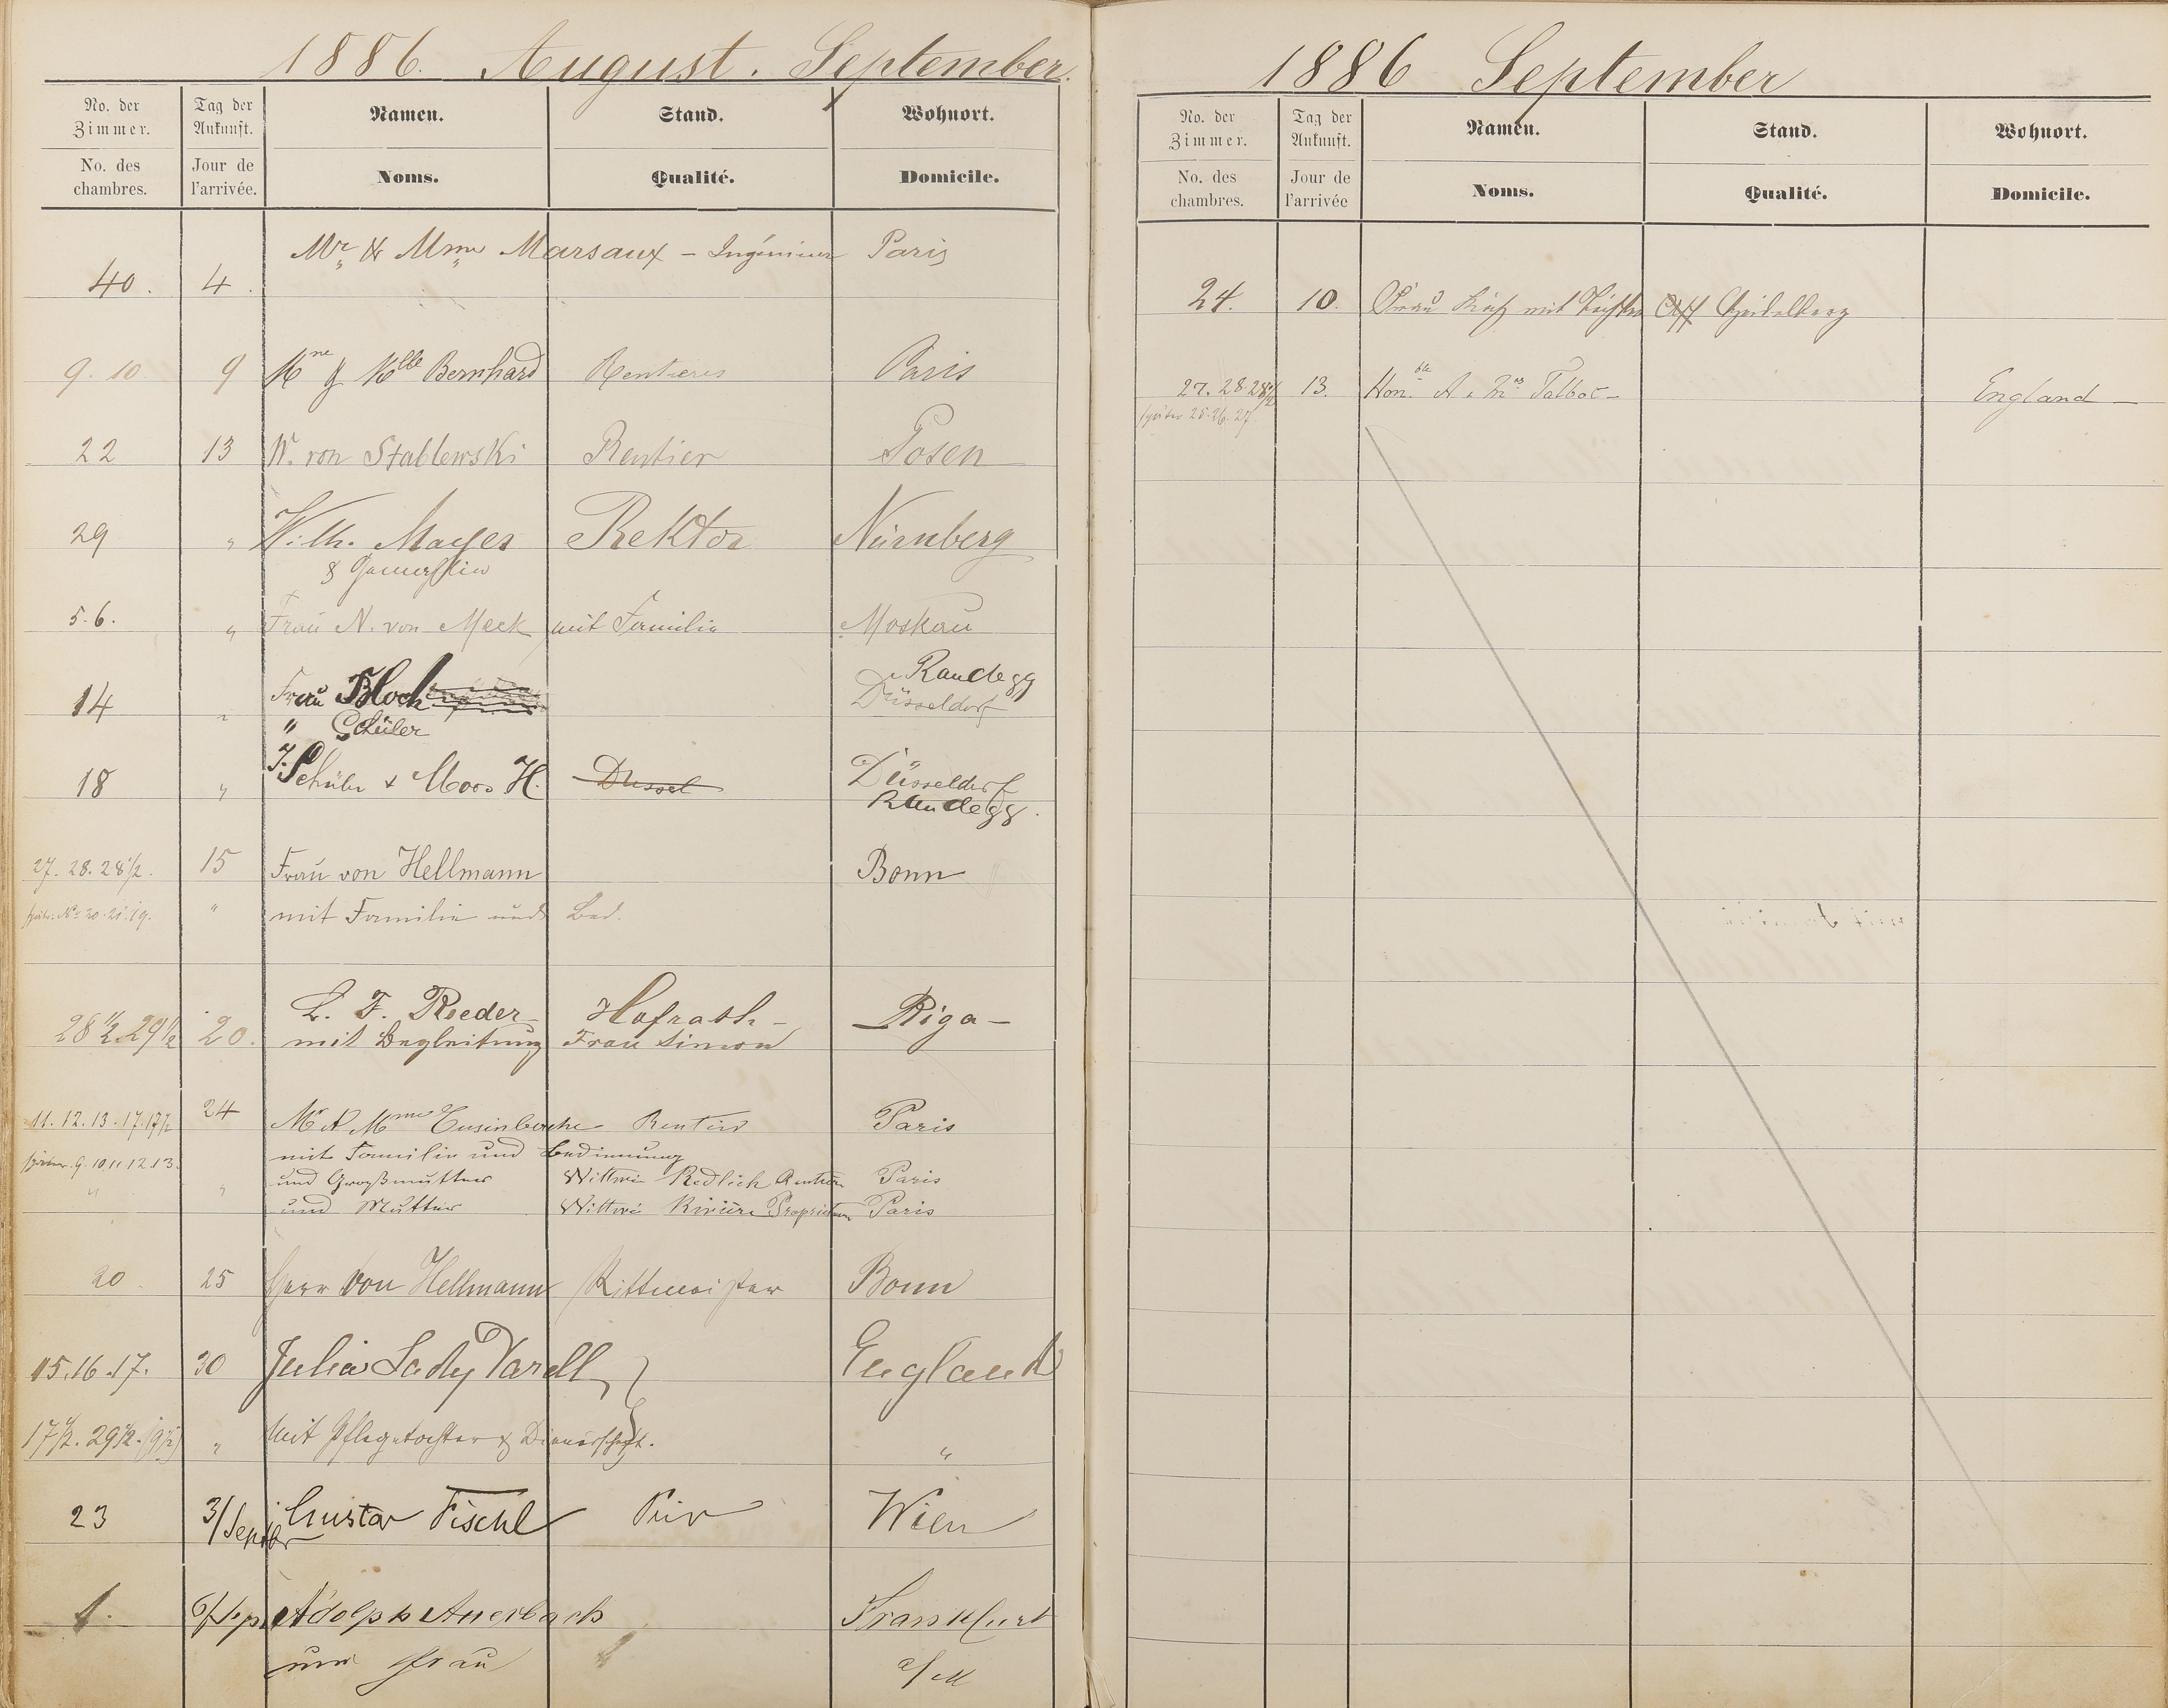 1886. August. September.
No. der Zimmer. Tag der Ankunft. Namen. Stand. Wohnort.
No. des chambres. Jour de l'arrivée. Noms. Qualité. Domicile.
40. 4. Mr. & Mme Marsaux - Ingénieur Paris
9. 10 9 Mme & Mlle Bernhard Rentieres Paris
22 13 W. von Stablewski Rentier Posen
29 " Wilh. Mayer Rektor Nürnberg
& Gemahlin
5. 6. " Frau N. von Meck mit Familie Moskau
Randegg
14 " Frau Bloch Düsseldorf
" Schüler
18 " J. Schüler & Moos H. Dussel Düsseldorf
Randegg.
27. 28. 28 1/2. 15 Frau von Hellmann Bonn
später No 20. 21. 19. " mit Familie und Bed.
L. F. Roeder - Hofrath - Riga -
28 1/2. 29 1/2 20. mit Begleitung Frau Simon
11. 12. 13. 17. 17 1/2 24 Mr & Mme Rentier Paris
später 9. 10. 11. 12. 13. mit Familie und Bedienung
" " und Großmutter Wittwe Redlich Rentiere Paris
und Mutter Wittwe Rivière Paris
20. 25 Herr von Hellmann Rittmeister Bonn
15. 16. 17. 30 Julia Lady England
17 1/2. 29 1/2. " mit Pflegetochter & Dienerschaft. "
23 3/Septbr Gustav Fischl Wien
1. 6/Sep Adolph Auerbach Frankfurt
und Frau a/M
1886 September
No. der Zimmer. Tag der Ankunft. Namen. Stand. Wohnort.
No. des chambres. Jour de l'arrivée Noms. Qualité. Domicile.
24. 10. Frau mit Tochter Heidelberg
27. 28. 28 1/2 13. Honble A. & Mrs Talbot - England -
später 25. 26. 27